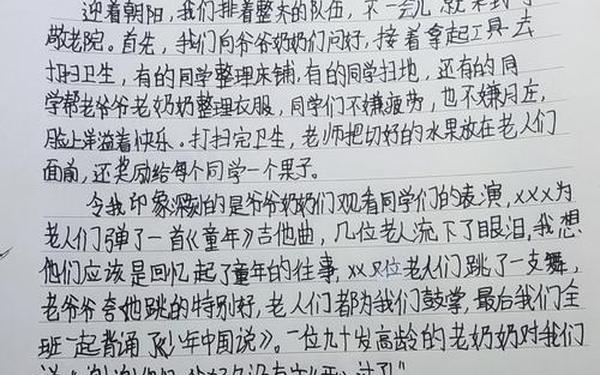 迎着朝阳，我们排着整齐的队伍，不一会儿就来到了
敬老院。首先，我们向爷爷奶奶们问好，接着拿起工具去
打扫卫生，有的同学整理床铺，有的同学扫地，还有的同
学帮老爷爷老奶奶整理衣服，同学们不嫌疲劳，也不嫌脏，
脸上洋溢着快乐。打扫完卫生，老师把切好的水果放在老人们
面前，还奖励给每个同学一个果子。
令我印象深刻的是爷爷奶奶们观看同学们的表演，XXX为
老人们弹了一首《童年》吉他曲，几位老人流下了眼泪，我想
他们应该是回忆起了童年的往事，XX只位老人们跳了一支舞，
老爷爷夸她跳的特别好，老人们都为我们鼓掌，最后我们全
班一起背诵了《少年中国说》。一位九十岁高龄的老奶奶对我们